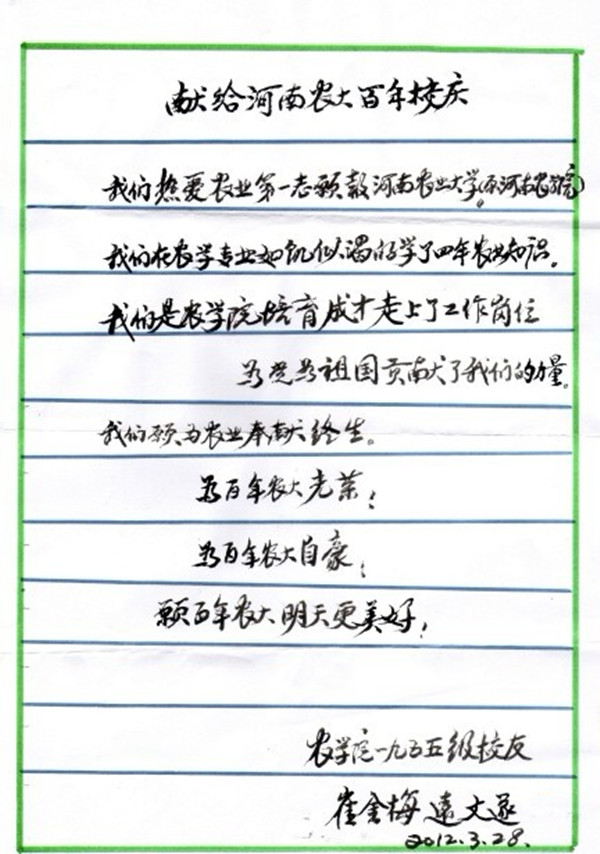 献给河南农大百年校庆
我们热爱农业第一志愿报河南农业大学(原河南农学院)。
我们在农学专业如饥似渴的学了四年农业知识。
我们是农学院培育成才走上了工作岗位
为党为祖国贡献了我们的力量。
我们愿为农业奉献终生。
为百年农大光荣!
为百年农大自豪!
愿百年农大明天更美好!
农学院一九五五级校友
崔金梅 文
2012.3.28.